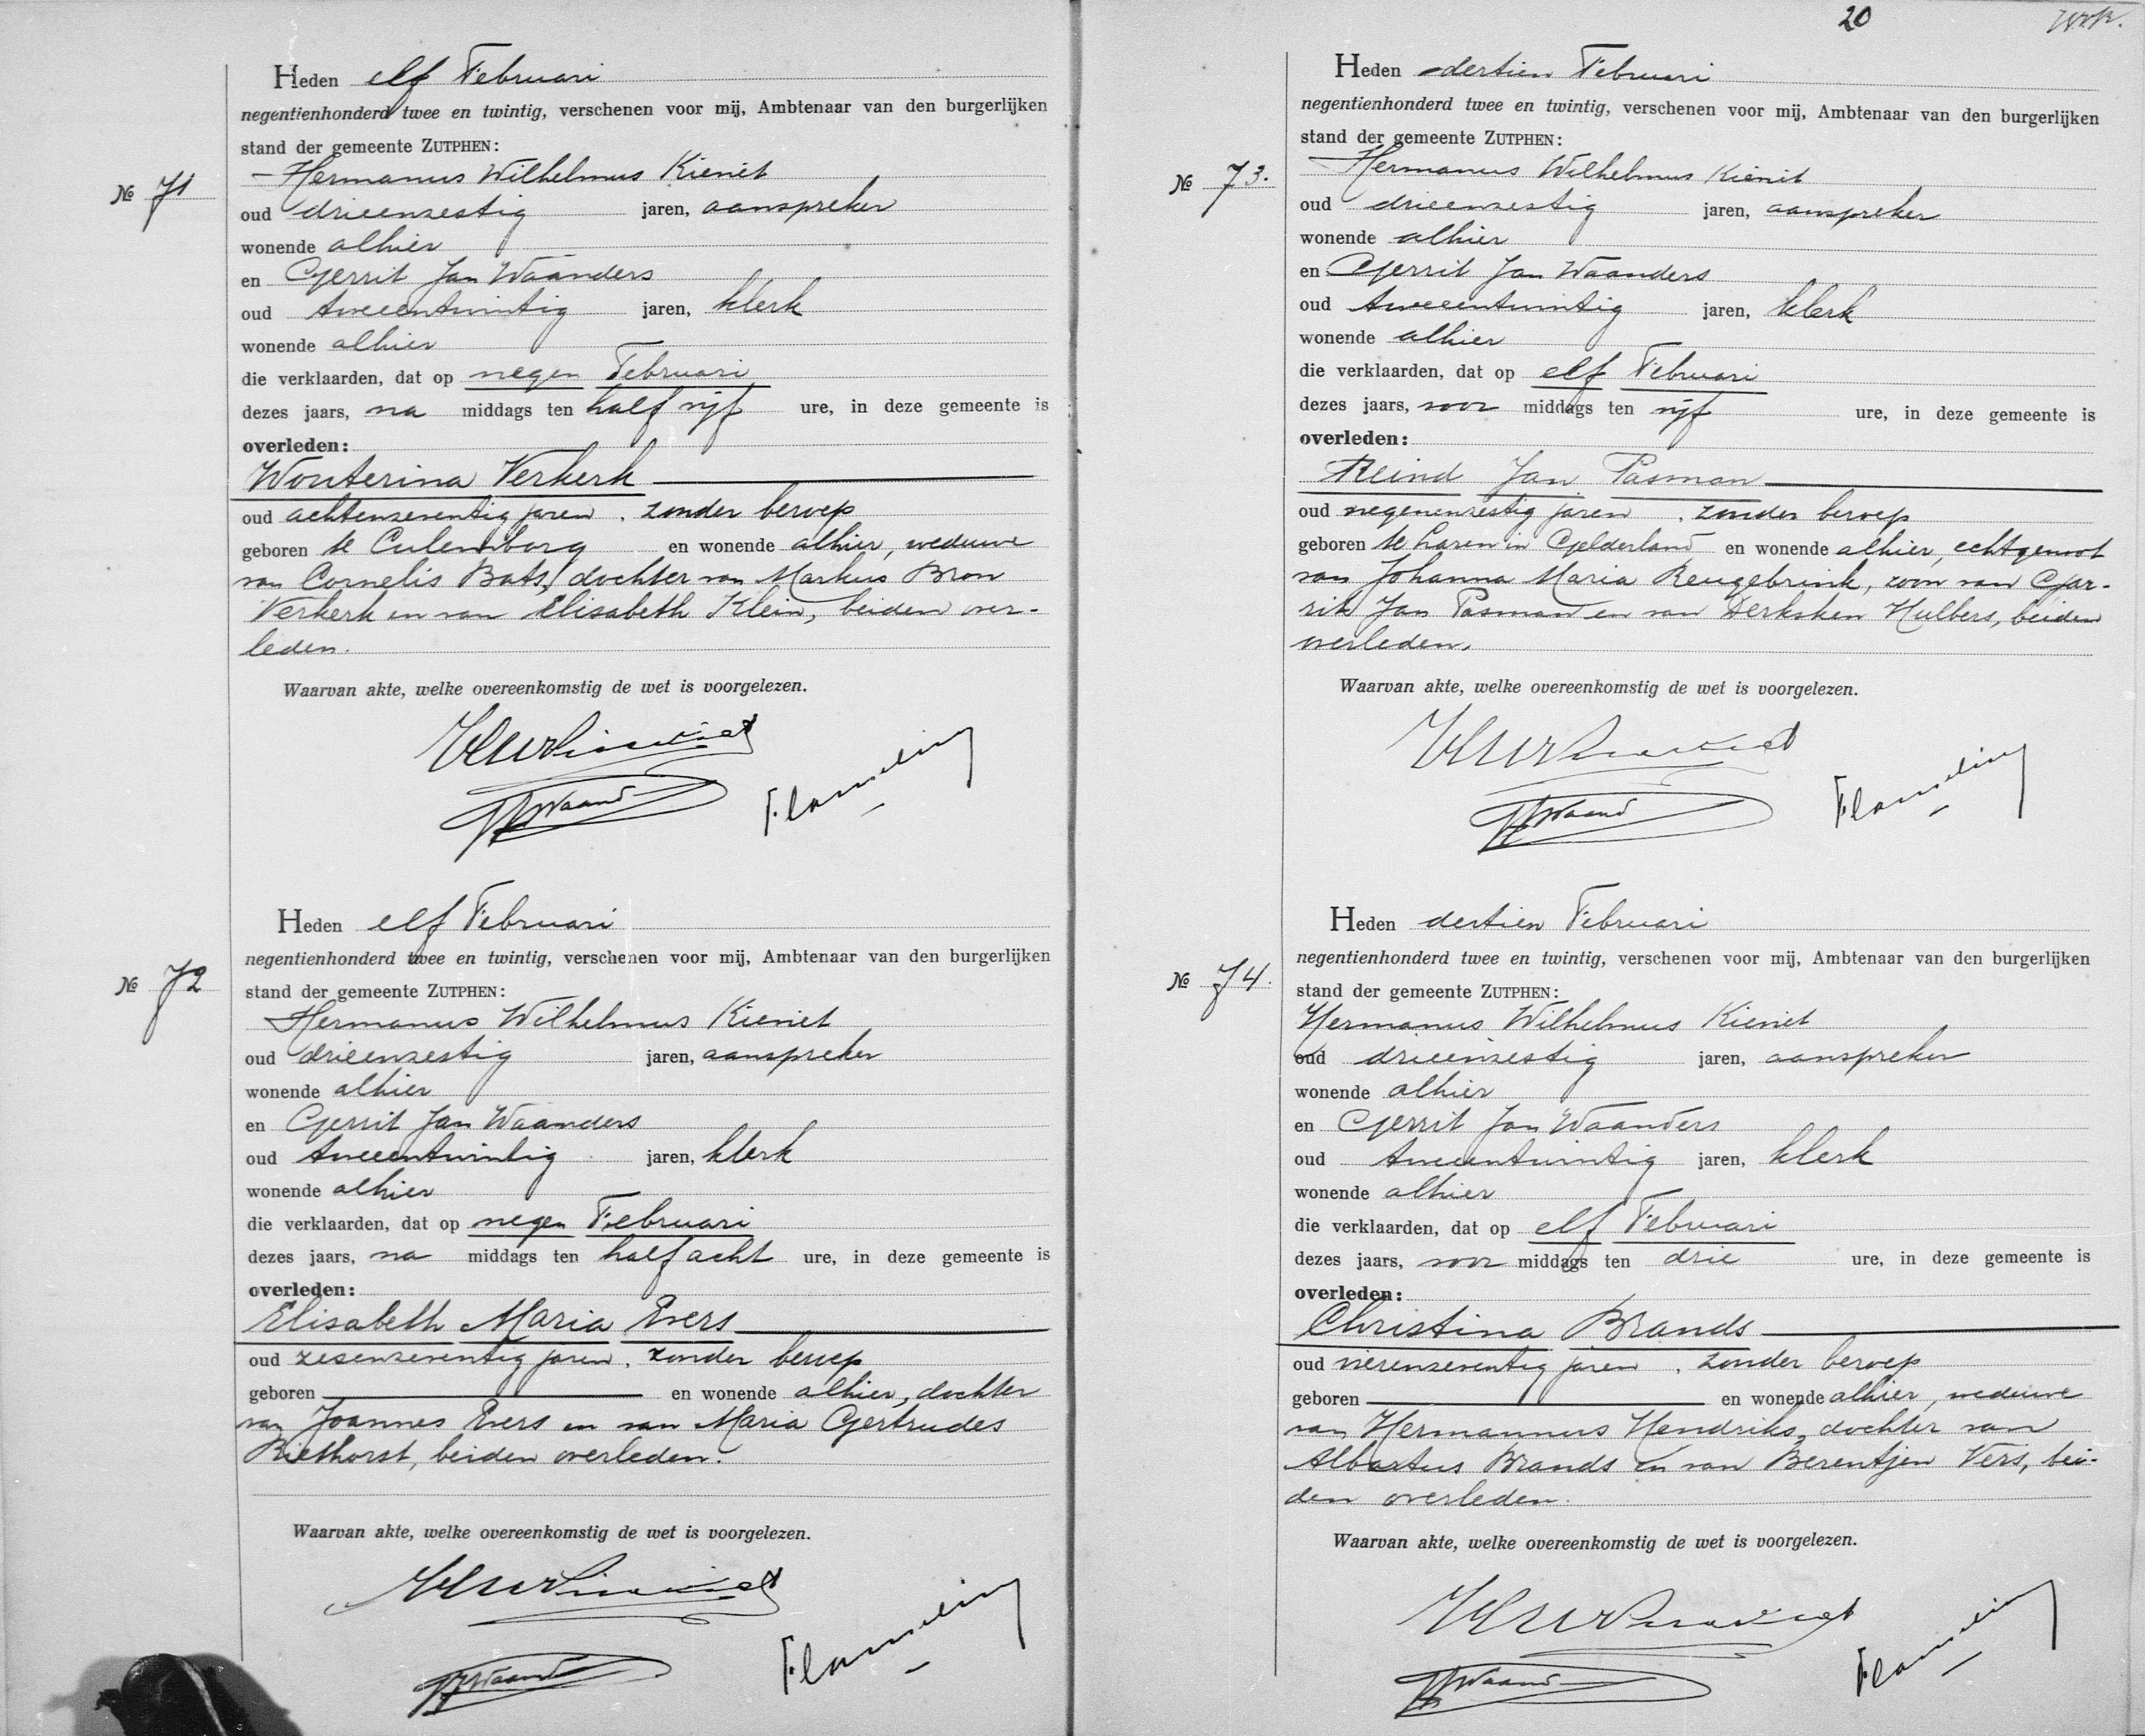 Heden elf Februari
negentienhonderd twee en twintig, verschenen voor mij, Ambtenaar van den burgerlijken
stand der gemeente ZUTPHEN:
No 71
Hermanus Wilhelmus Kieniet
oud drieenzestig jaren, aanspreker
wonende alhier
en Gerrit Jan Waanders
oud tweeentwintig jaren, klerk
wonende alhier
die verklaarden, dat op negen Februari
dezes jaars, na middags ten half vijf ure, in deze gemeente is
overleden:
Wouterina Verkerk
oud achtenzeventig jaren, zonder beroep
geboren te Culemborg en wonende alhier, weduwe
van Cornelis Bats, dochter van Markus Bron
Verkerk en van Elisabeth Klein, beiden over-
leden.
Waarvan akte, welke overeenkomstig de wet is voorgelezen.
HWKieniet
GJWaand
Flameling
Heden elf Februari
negentienhonderd twee en twintig, verschenen voor mij, Ambtenaar van den burgerlijken
No 72
stand der gemeente ZUTPHEN:
Hermanus Wilhelmus Kieniet
oud drieenzestig jaren, aanspreker
wonende alhier
en Gerrit Jan Waanders
oud tweeentwintig jaren, klerk
wonende alhier
die verklaarden, dat op negen Februari
dezes jaars, na middags ten half acht ure, in deze gemeente is
overleden:
Elisabeth Maria Evers
oud zesenzeventig jaren, zonder beroep
geboren en wonende alhier, dochter
van Joannes Evers en van Maria Gertrudes
Riethorst, beiden overleden.
Waarvan akte, welke overeenkomstig de wet is voorgelezen.
HWKieniet
GJWaand
Flameling
20
Heden dertien Februari
negentienhonderd twee en twintig, verschenen voor mij, Ambtenaar van den burgerlijken
stand der gemeente ZUTPHEN:
No 73.
Hermanus Wilhelmus Kieniet
oud drieenzestig jaren, aanspreker
wonende alhier
en Gerrit Jan Waanders
oud tweeentwintig jaren, klerk
wonende alhier
die verklaarden, dat op elf Februari
dezes jaars, voor middags ten vijf ure, in deze gemeente is
overleden:
Reind Jan Pasman
oud negenenzestig jaren, zonder beroep
geboren te Laren in Gelderland en wonende alhier, echtgenoot
van Johanna Maria Reugebrink, zoon van Gar-
rit Jan Pasman en van Derksken Hulbers, beiden
overleden.
Waarvan akte, welke overeenkomstig de wet is voorgelezen.
HWKieniet
GJWaand
Flameling
Heden dertien Februari
negentienhonderd twee en twintig, verschenen voor mij, Ambtenaar van den burgerlijken
No 74.
stand der gemeente ZUTPHEN:
Hermanus Wilhelmus Kieniet
oud drieenzestig jaren, aanspreker
wonende alhier
en Gerrit Jan Waanders
oud tweeentwintig jaren, klerk
wonende alhier
die verklaarden, dat op elf Februari
dezes jaars, voor middags ten drie ure, in deze gemeente is
overleden:
Christina Brands
oud vierenzeventig jaren, zonder beroep
geboren en wonende alhier, weduwe
van Hermannus Hendriks, dochter van
Albartus Brands en van Berentjen Vers, bei-
den overleden.
Waarvan akte, welke overeenkomstig de wet is voorgelezen.
HWKieniet
GJWaand
Flameling